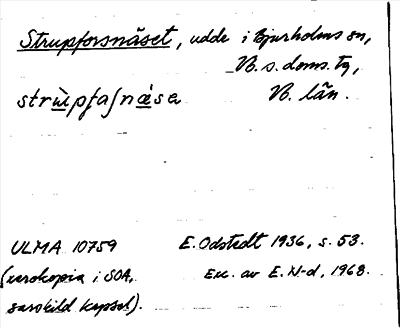 Strupforsnäset, udde i Bjurholms sn,
Vb. s. doms. tg,
strù̀pfas̩nǽsa Vb. län.
ULMA 10759 E. Odstedt 1936, s. 53.
(xerokopia i SOA, Exc. av E. N-d, 1968.
särskild kapsel).